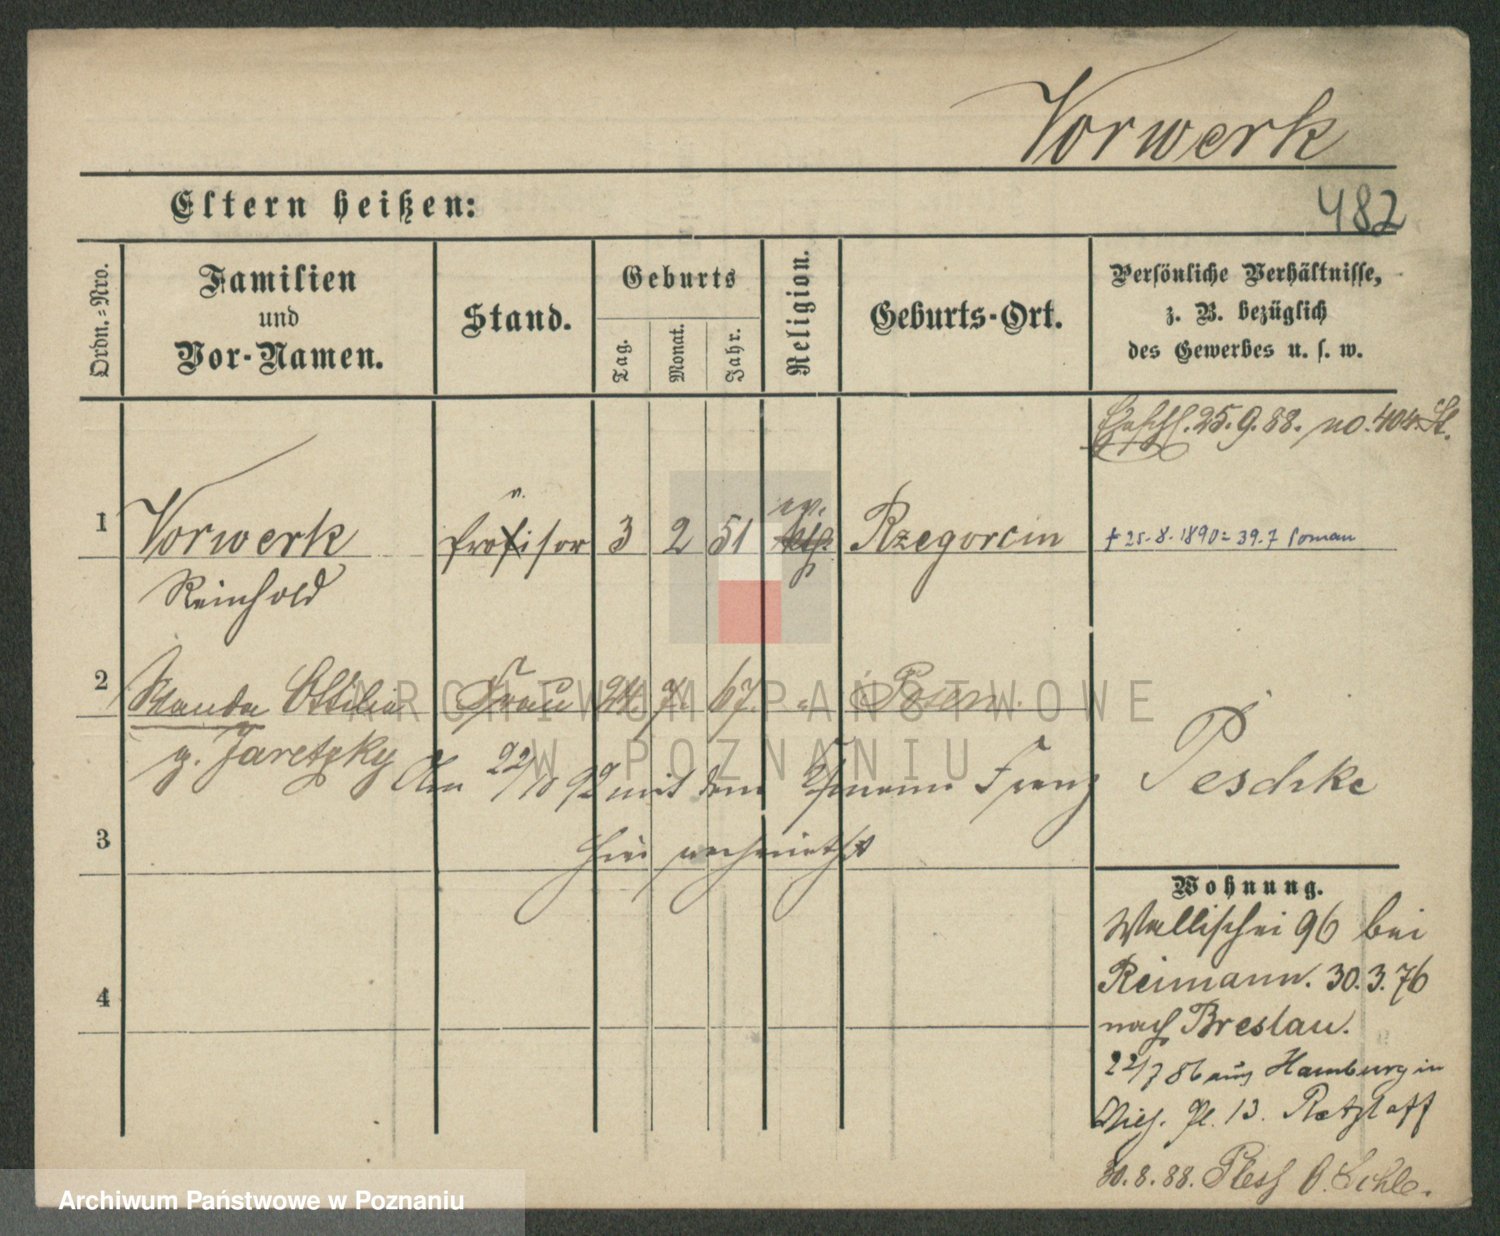 Vorwerk
482
Eltern heißen:
Ordn.-Nro.
Familien
und
Vor-Namen.
Stand.
Geburts
Tag.
Monat.
Jahr.
Religion.
Geburts-Ort.
Persönliche Verhältnisse,
z. B. bezüglich
des Gewerbes u. s. w.
25.9.88. no. 404. St.
1 Vorwerk 3 2 51 ev. Rzegorcin † 25.8.1890 = 39.7 Poznan
Reinhold
2 Wanda Ottilie Frau 24. 7. 67. " Posen.
g. Jaretzky
Am 22/10 92 mit dem Ehemann Franz Peschke
3 hier
Wohnung.
Wallischei 96 bei
Reimann. 30.3.76
4
nach Breslau.
22/7 86 aus Hamburg in
Pl. 13. Retzlaff
30.8.88. Pless O. Schle.
ARCHIWUM PAŃSTWOWE
W POZNANIU
Archiwum Państwowe w Poznaniu